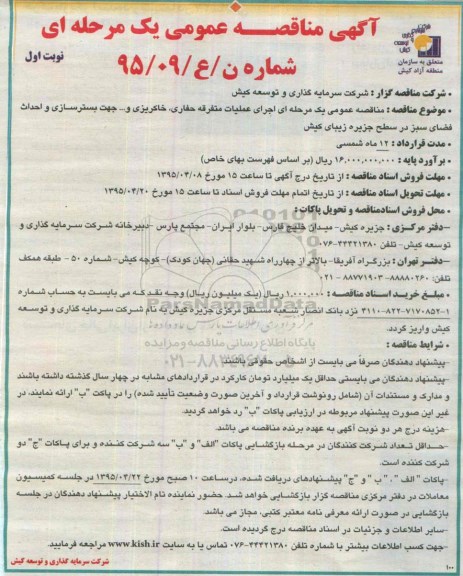 آگهی مناقصه عمومی یک مرحله ای
شماره ن/ع/۹۵/۰۹
نوبت اول
متعلق به سازمان
منطقه آزاد کیش
• شرکت مناقصه گزار : شرکت سرمایه گذاری و توسعه کیش
• موضوع مناقصه : مناقصه عمومی یک مرحله ای اجرای عملیات متفرقه حفاری، خاکریزی و... جهت بسترسازی و احداث
فضای سبز در سطح جزیره زیبای کیش
• مدت قرارداد : ۱۲ ماه شمسی
• برآورد پایه : ۱۶.۰۰۰.۰۰۰.۰۰۰ ریال (بر اساس فهرست بهای خاص)
• مهلت فروش اسناد مناقصه : از تاریخ درج آگهی تا ساعت ۱۵ مورخ ۱۳۹۵/۰۴/۰۸
• مهلت تحویل اسناد مناقصه : از تاریخ اتمام مهلت فروش اسناد تا ساعت ۱۵ مورخ ۱۳۹۵/۰۴/۲۰
• محل فروش اسنادمناقصه و تحویل پاکات:
–دفتر مرکزی : جزیره کیش- میدان خلیج فارس- بلوار ایران- مجتمع پارس -دبیرخانه شرکت سرمایه گذاری و
توسعه کیش- تلفن ۴۴۴۲۱۳۸۰-۰۷۶
–دفتر تهران : بزرگراه آفریقا- بالاتر از چهارراه شهید حقانی (جهان کودک)- کوچه کیش- شماره ۵۰ - طبقه همکف
تلفن: ۸۸۸۸۰۲۶۰- ۸۸۷۷۱۹۰۳-۰۲۱
• مبلغ خرید اسناد مناقصه : ۱.۰۰۰.۰۰۰ ریال (یک میلیون ریال) وجه نقد که می بایست به حساب شماره
۳۱۱۰-۸۲۲-۷۱۷۰۸۵۲-۱ نزد بانک انصار شعبه مستقل مرکزی جزیره کیش به نام شرکت سرمایه گذاری و توسعه
کیش واریز گردد.
• شرایط مناقصه :
–پیشنهاد دهندگان صرفاً می بایست از اشخاص حقوقی باشند
–پیشنهاد دهندگان می بایستی حداقل یک میلیارد تومان کارکرد در قراردادهای مشابه در چهار سال گذشته داشته باشند
و مدارک و مستندات آن (شامل رونوشت قرارداد و آخرین صورت وضعیت تأیید شده) را در پاکت "ب" ارائه نمایند، در
غیر این صورت پیشنهاد مربوطه در ارزیابی پاکات "ب" رد خواهد گردید.
–هزینه درج هر دو نوبت آگهی به عهده برنده مناقصه می باشد.
–حداقل تعداد شرکت کنندگان در مرحله بازگشایی پاکات "الف" و "ب" سه شرکت کننده و برای پاکات "ج" دو
شرکت کننده است.
–پاکات " الف " ، " ب " و "ج" پیشنهادهای دریافت شده، درساعت ۱۰ صبح مورخ ۱۳۹۵/۰۴/۲۲ در جلسه کمیسیون
معاملات در دفتر مرکزی مناقصه گزار بازگشایی خواهد شد. حضور نماینده تام الاختیار پیشنهاد دهندگان در جلسه
بازگشایی در صورت ارائه معرفی نامه معتبر کتبی، مجاز می باشد.
–سایر اطلاعات و جزئیات در اسناد مناقصه درج گردیده است.
–جهت کسب اطلاعات بیشتر با شماره تلفن ۴۴۴۲۱۳۸۰-۰۷۶ تماس یا به سایت www.kish.ir مراجعه فرمایید.
شرکت سرمایه گذاری و توسعه کیش
۱۰۰
ParsNamadData
پایگاه اطلاع رسانی مناقصه و مزایده